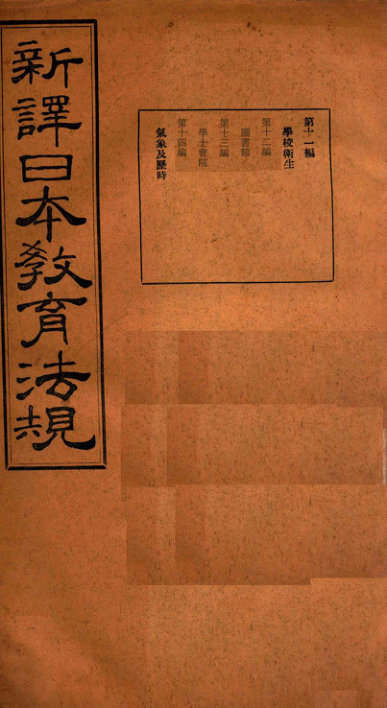 新譯日本敎育法規
第十一編
學校衛生
第十二編
圖書館
第十三編
學士會院
第十四編
氣象及曆時